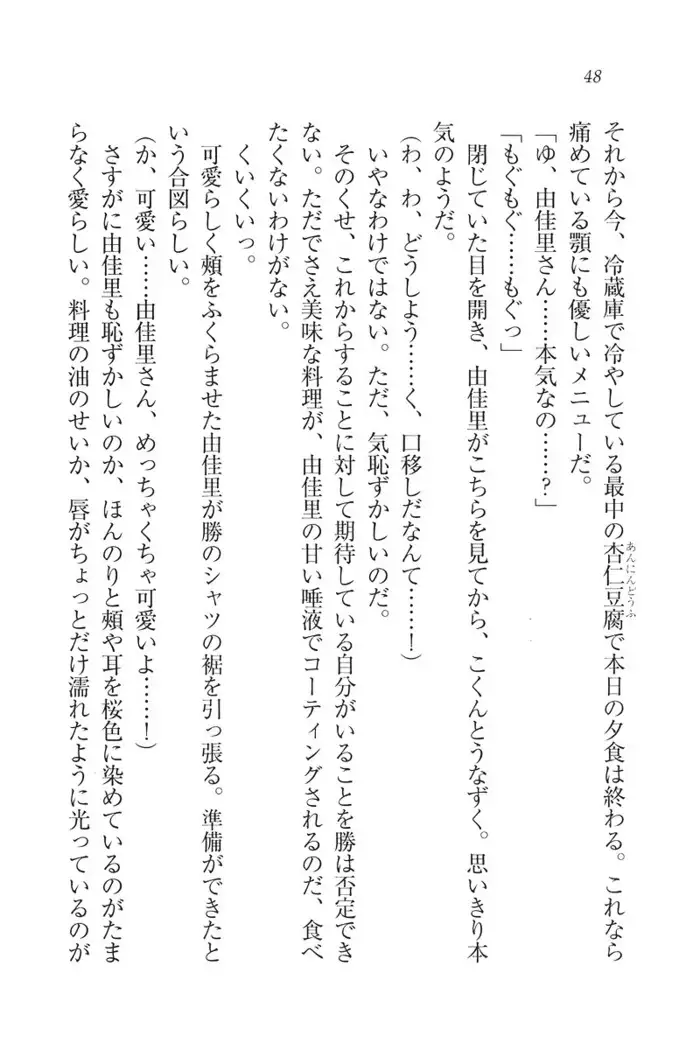 48
それから今、冷蔵庫で冷やしている最中の杏仁豆腐で本日の夕食は終わる。これなら
あんにんどうふ
痛めている顎にも優しいメニューだ。
「ゆ、由佳里さん……本気なの……？」
「もぐもぐ……もぐっ」
閉じていた目を開き、由佳里がこちらを見てから、こくんとうなずく。思いきり本
気のようだ。
（わ、わ、どうしよう……く、口移しだなんて……！）
いやなわけではない。ただ、気恥ずかしいのだ。
そのくせ、これからすることに対して期待している自分がいることを勝は否定でき
ない。ただでさえ美味な料理が、由佳里の甘い唾液でコーティングされるのだ、食べ
たくないわけがない。
くいくいっ。
可愛らしく頰をふくらませた由佳里が勝のシャツの裾を引っ張る。準備ができたと
いう合図らしい。
（か、可愛い……由佳里さん、めっちゃくちゃ可愛いよ……！）
さすがに由佳里も恥ずかしいのか、ほんのりと頰や耳を桜色に染めているのがたま
らなく愛らしい。料理の油のせいか、唇がちょっとだけ濡れたように光っているのが